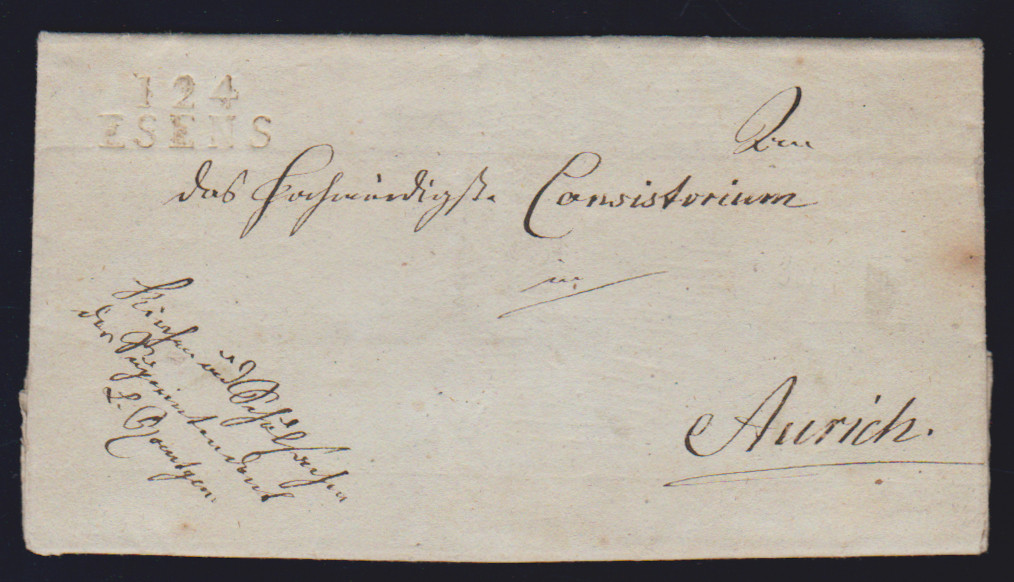 124
ESENS
An
das Hochwürdigste Consistorium
in
Aurich.
Kirchen und Schulsachen
des Superintendent